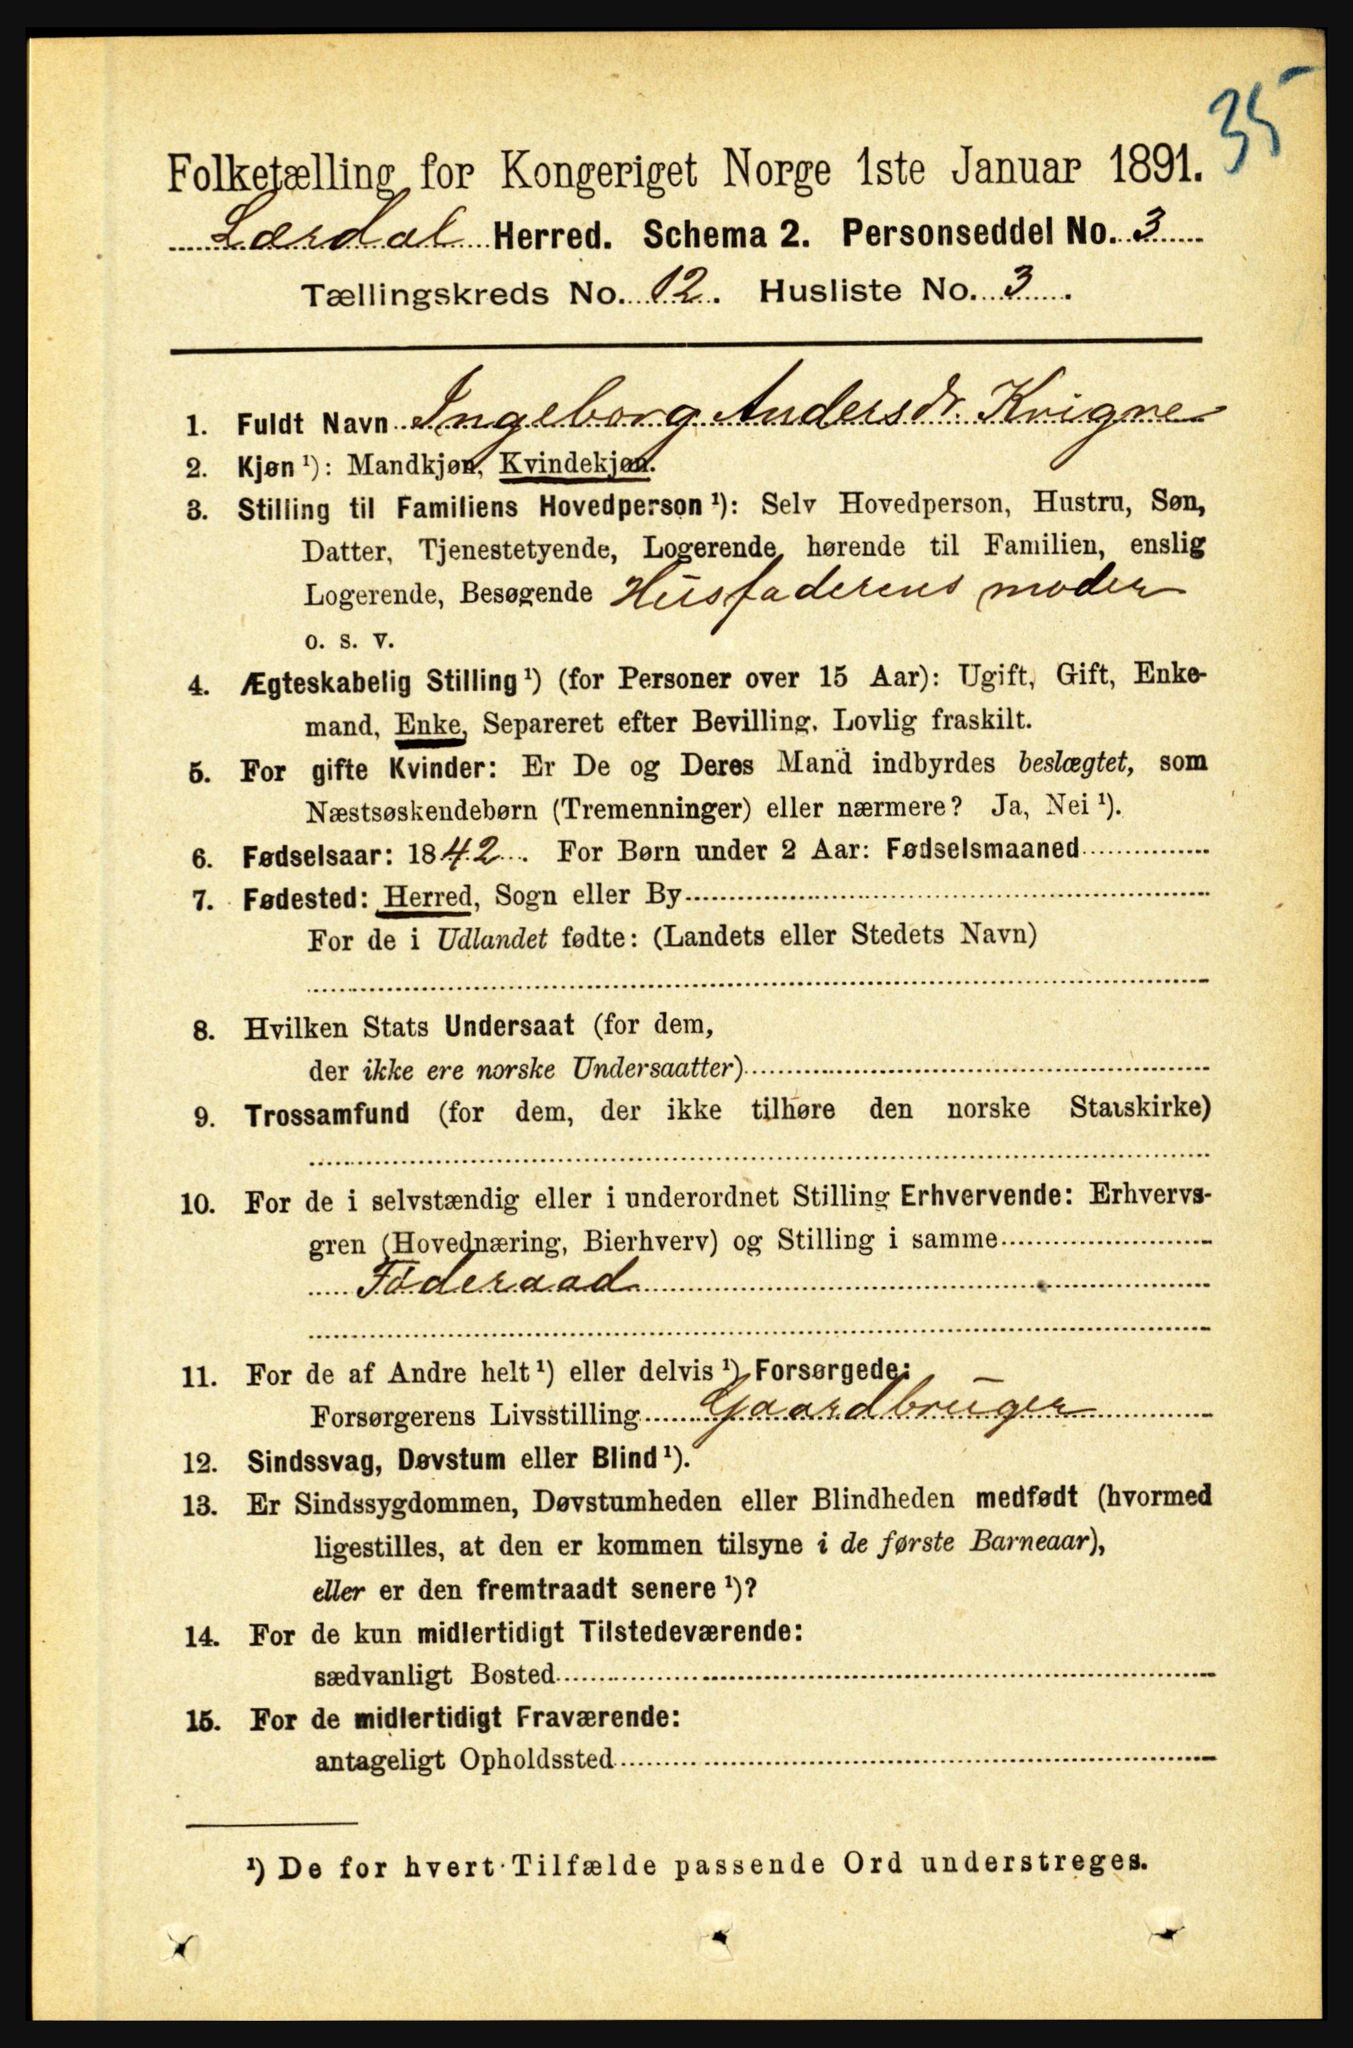 35
Folketælling for Kongeriget Norge 1ste Januar 1891.
Lærdal Herred. Schema 2. Personseddel No. 3
Tællingskreds No. 12. Husliste No. 3.
1. Fuldt Navn Ingeborg Andersdr. Kvigne
2. Kjøn ¹): Mandkjøn, Kvindekjøn.
3. Stilling til Familiens Hovedperson ¹): Selv Hovedperson, Hustru, Søn,
Datter, Tjenestetyende, Logerende hørende til Familien, enslig
Logerende, Besøgende Husfaderens moder
o. s. v.
4. Ægteskabelig Stilling ¹) (for Personer over 15 Aar): Ugift, Gift, Enke-
mand, Enke, Separeret efter Bevilling, Lovlig fraskilt.
5. For gifte Kvinder: Er De og Deres Mand indbyrdes beslægtet, som
Næstsøskendebørn (Tremenninger) eller nærmere? Ja, Nei ¹).
6. Fødselsaar: 1842. For Børn under 2 Aar: Fødselsmaaned
7. Fødested: Herred, Sogn eller By
For de i Udlandet fødte: (Landets eller Stedets Navn)
8. Hvilken Stats Undersaat (for dem,
der ikke ere norske Undersaatter)
9. Trossamfund (for dem, der ikke tilhøre den norske Statskirke)
10. For de i selvstændig eller i underordnet Stilling Erhvervende: Erhvervs-
gren (Hovednæring, Bierhverv) og Stilling i samme
Føderaad
11. For de af Andre helt ¹) eller delvis ¹) Forsørgede:
Forsørgerens Livsstilling Gaardbruger
12. Sindssvag, Døvstum eller Blind ¹).
13. Er Sindssygdommen, Døvstumheden eller Blindheden medfødt (hvormed
ligestilles, at den er kommen tilsyne i de første Barneaar),
eller er den fremtraadt senere ¹)?
14. For de kun midlertidigt Tilstedeværende:
sædvanligt Bosted
15. For de midlertidigt Fraværende:
antageligt Opholdssted
¹) De for hvert Tilfælde passende Ord understreges.